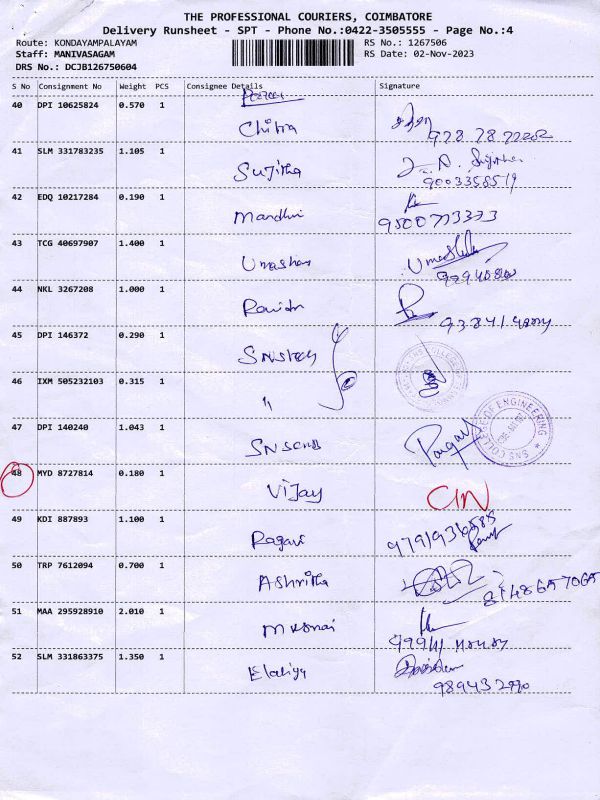 THE PROFESSIONAL COURIERS, COIMBATORE
Delivery Runsheet - SPT - Phone No.:0422-3505555 - Page No.:4
Route: KONDAYAMPALAYAM RS No.: 1267506
Staff: MANIVASAGAM RS Date: 02-Nov-2023
DRS No.: DCJB126750604
S No Consignment No Weight PCS Consignee Details Signature
40 DPI 10625824 0.570 1
Chitra
41 SLM 331783235 1.105 1
Sujitha
9003358519
42 EDQ 10217284 0.190 1
Mandhri
9500773333
43 TCG 40697907 1.400 1
Umashan
44 NKL 3267208 1.000 1
45 DPI 146372 0.290 1
SNSTech
46 IXM 505232103 0.315 1
"
47 DPI 140240 1.043 1
SNS COLLEGE OF ENGINEERING
48 MYD 8727814 0.180 1
Vijay CIN
49 KDI 887893 1.100 1
Ragavi
50 TRP 7612094 0.700 1
Ashritha
51 MAA 295928910 2.010 1
52 SLM 331863375 1.350 1
Elakiya